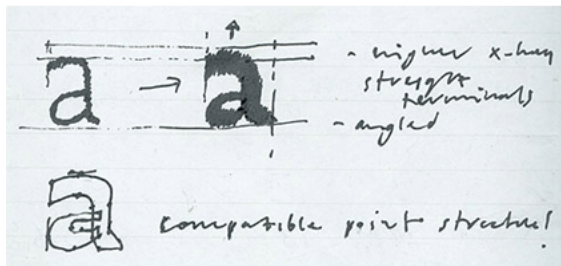 a → a
- higher x-hei
straight
terminals
- angled
a compatible point structure!